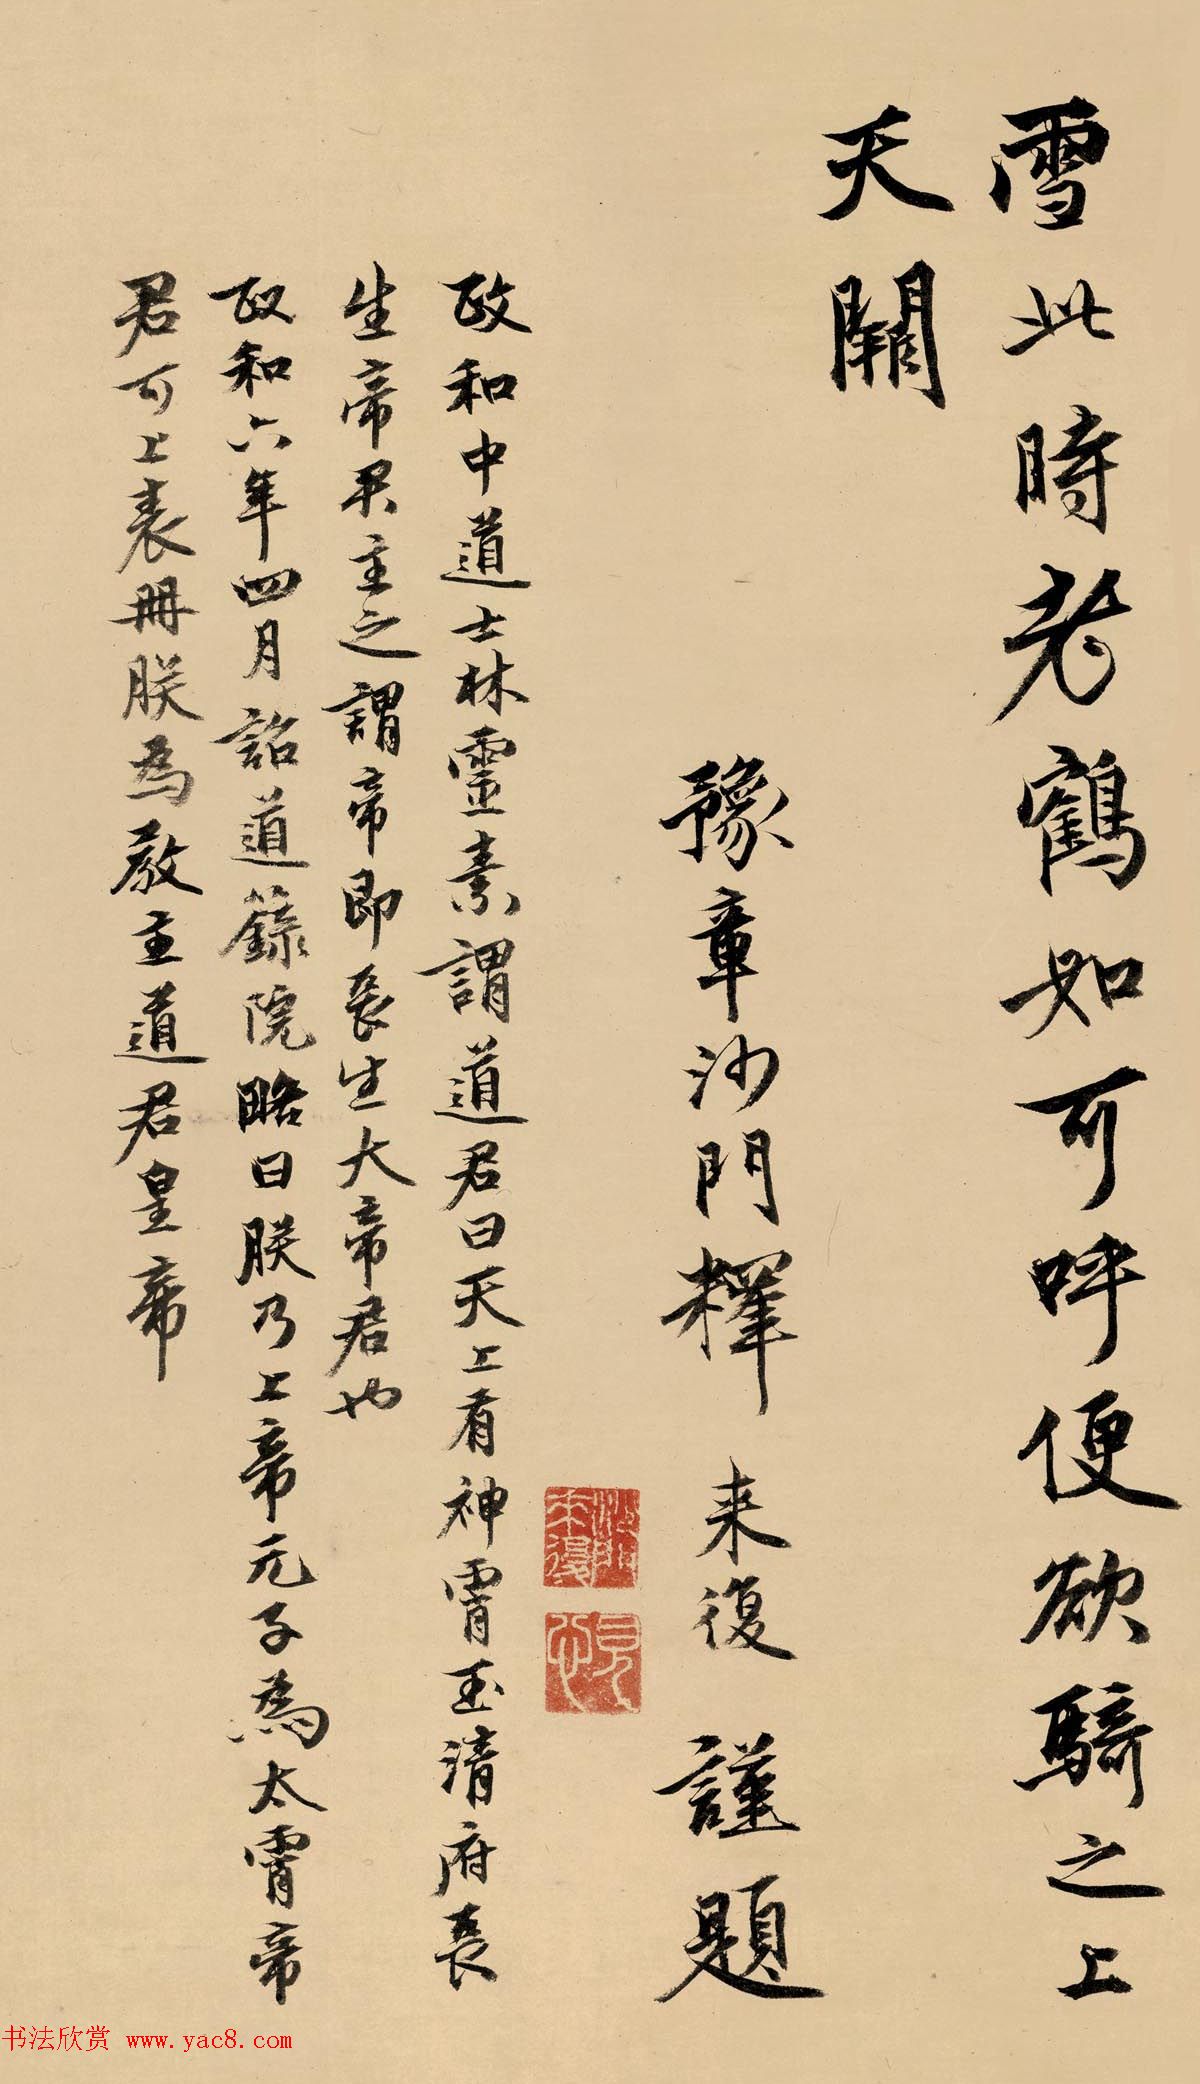 雪此時老鶴如可呼便欲騎之上
天關
豫章沙門釋 来復 謹題
沙門
来復
見
心
政和中道士林靈素謂道君曰天上有神霄玉清府長
生帝君主之謂帝即長生大帝君也
政和六年四月詔道籙院略曰朕乃上帝元子為太霄帝
君可上表冊朕為教主道君皇帝
书法欣赏 www.yac8.com